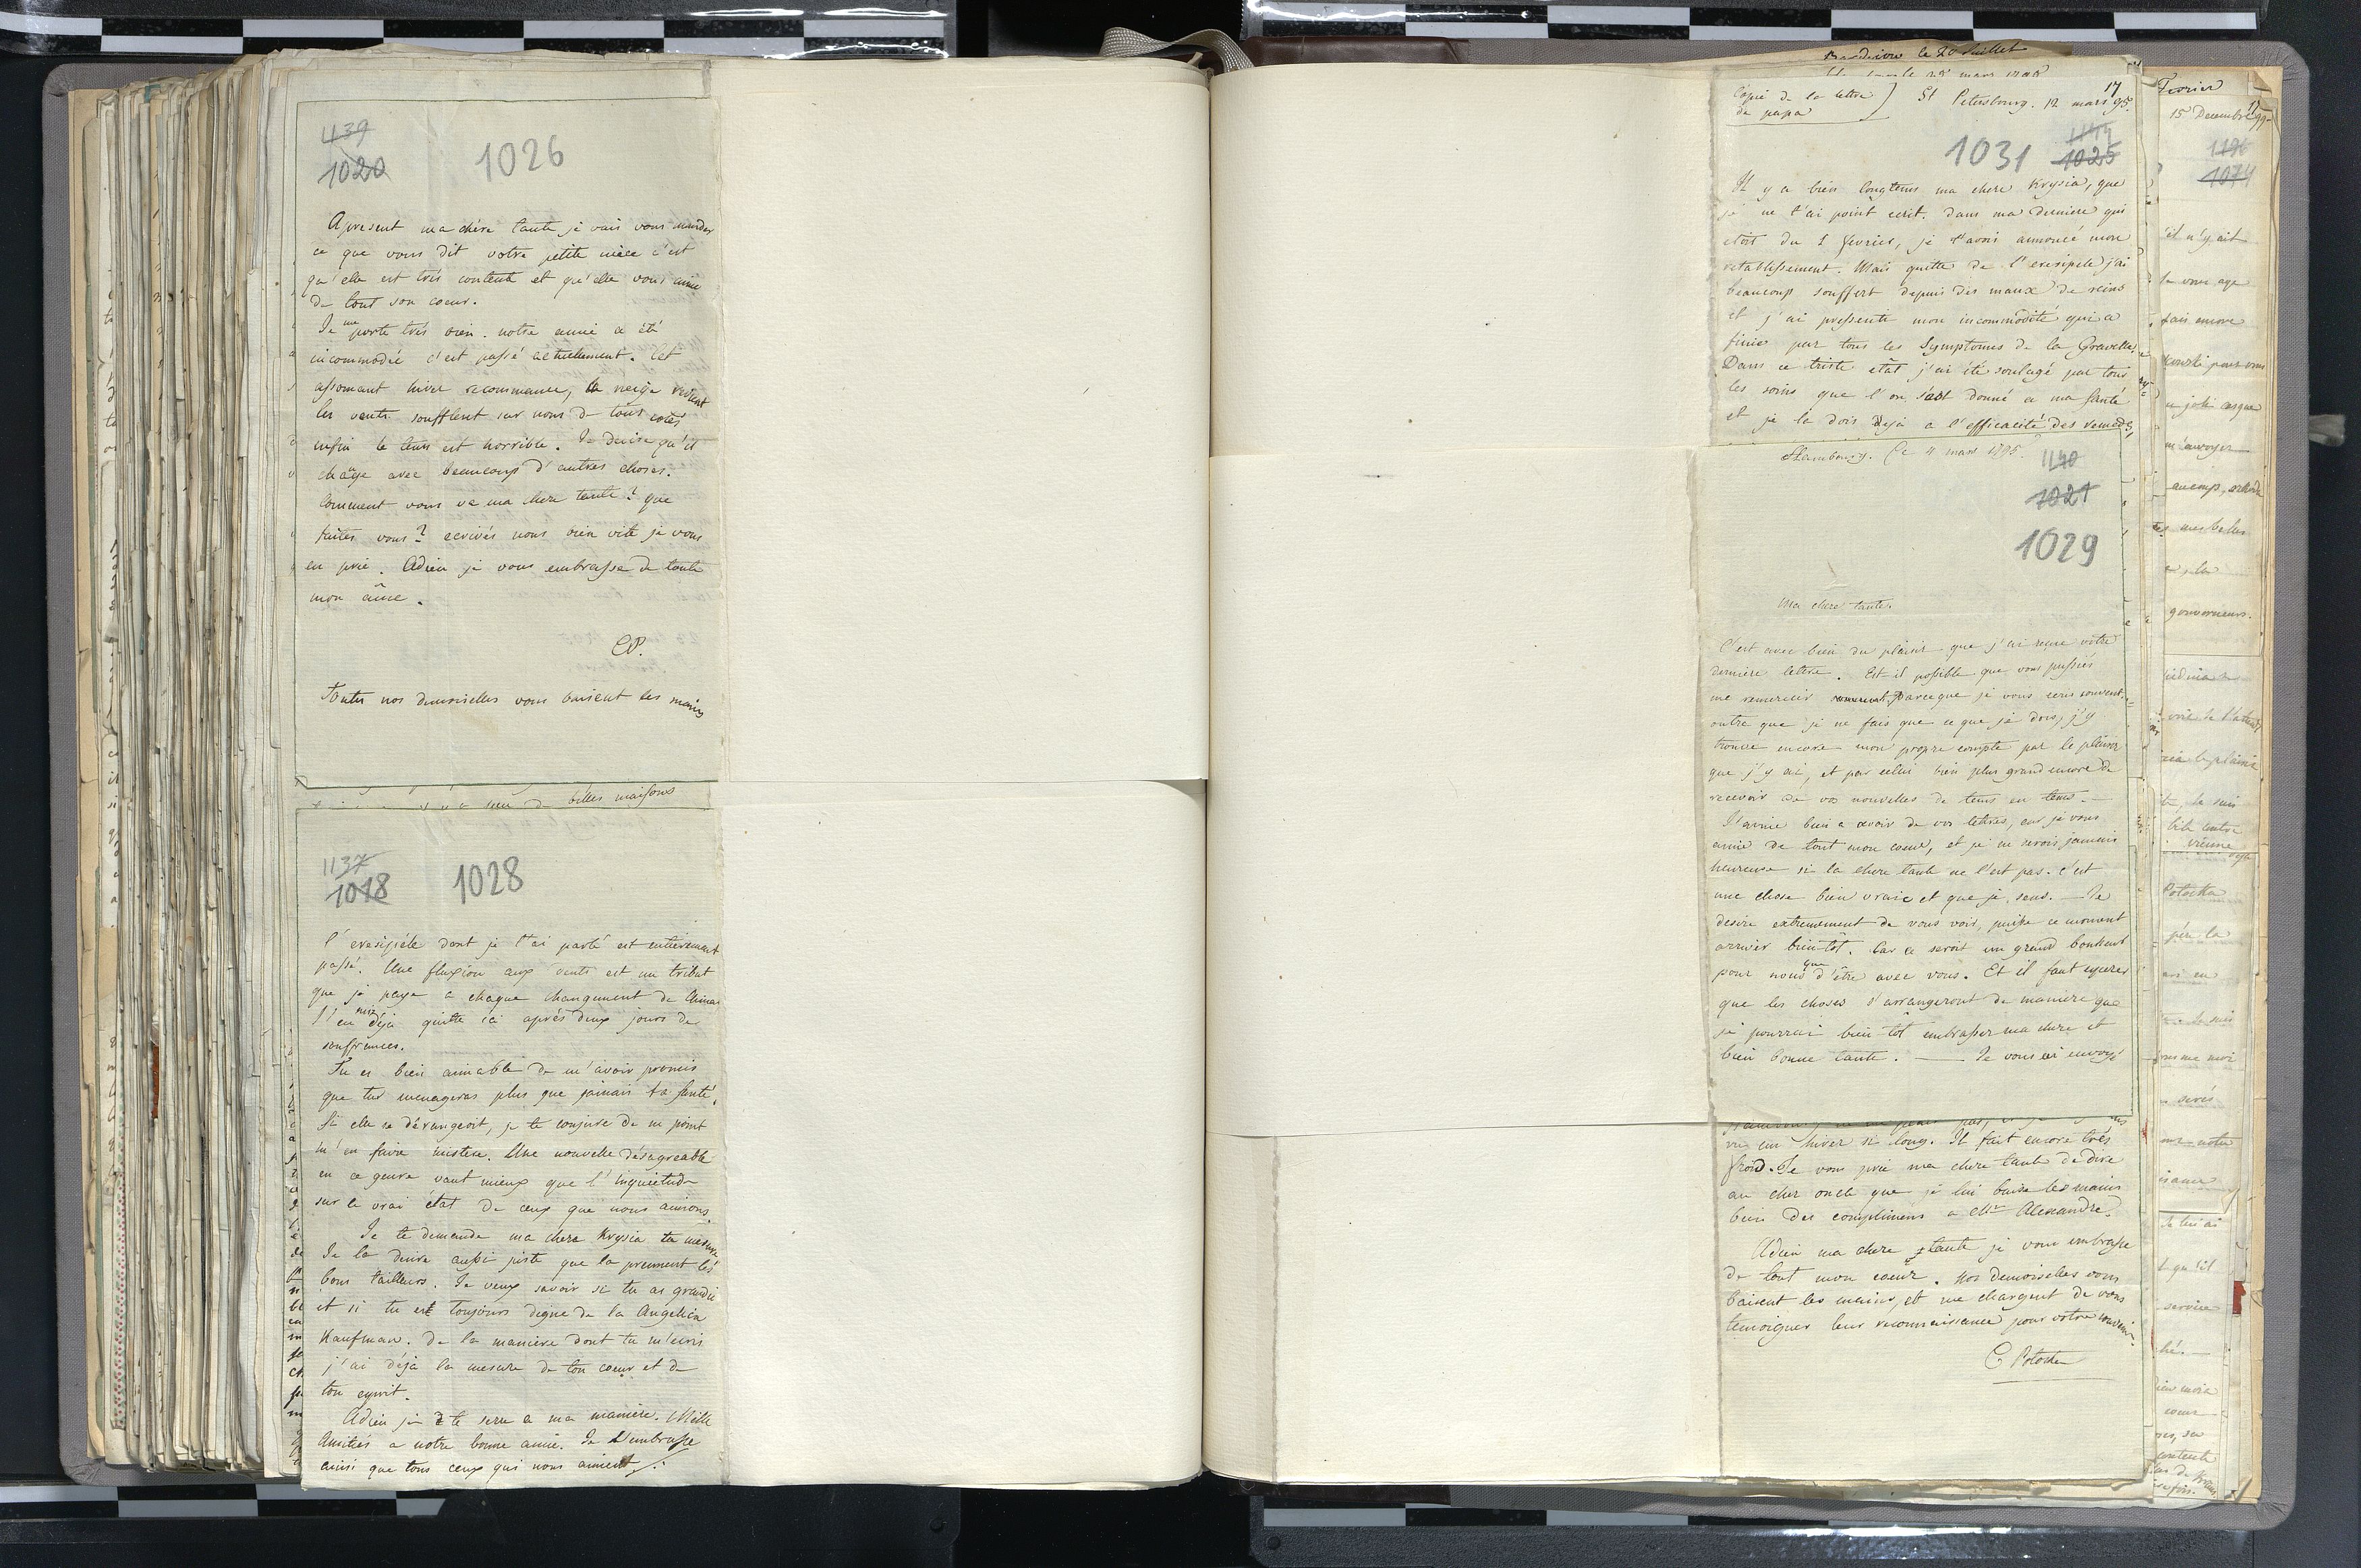 1139
1020
1026
Apresent ma chére tante je vais vous mander
ce que vous dit votre petite niéce c'est
qu'elle est trés contente et qu'elle vous aime
de tout son coeur.
Je me porte trés bien. notre amie a été
incommodée c'est passé actuellement. Cet
assomant hiver recommence, la neige revient
les vents soufflent sur nous de tous cotés
enfin le tems est horrible. Je desire qu'il
change avec beaucoup d'autres choses.
Comment vous va ma chere tante? que
faites vous? ecrivés nous bien vite je vous
en prie. Adieu je vous embrasse de toute
mon âme.
CP.
Toutes nos demoiselles vous baisent les mains
de belles maisons
1137
1018
1028
l'eresipéle dont je t'ai parlé est entierement
passé. Une fluxion aux dents est un tribut
que je paye a chaque changement de climat
J'en suis déja quitte ici aprés deux jours de
souffrances.
Tu es bien aimable de m'avoir promis
que tu menageras plus que jamais ta santé.
Si elle se dérangeoit, je te conjure de ne point
m'en faire mistere. Une nouvelle désagreable
en ce genre vaut mieux que l'inquietude
sur le vrai état de ceux que nous aimons.
Je te demande ma chere Krysia ta mesure
Je la desire aussi juste que la prennent les
bons tailleurs. Je veux savoir si tu as grandie
et si tu est toujours digne de la Angelica
Kaufman. De la maniere dont tu m'ecris
j'ai déja la mesure de ton coeur et de
ton esprit.
Adieu je te serre a ma maniere. Mille
Amitiés a notre bonne amie. Je l'embrasse
ainsi que tous ceux qui nous aiment.
Copie de la lettre
de papa
St Petersbourg. 12 mars 1795.
1031
1025
Il y a bien longtems ma chere Krysia, que
je ne t'ai point ecrit. dans ma derniere qui
etoit du 1 fevrier, je t'avois annoncé mon
retablissement. Mais quitte de l'eresipele j'ai
beaucoup souffert depuis des maux de reins
et j'ai pressenti mon incommodité qui a
finie par tous les Symptomes de la Gravelle.
Dans ce triste état j'ai été soulagé par tous
les soins que l'on s'est donné a ma santé
et je la dois deja a l'efficacité des remedes,
Hambourg. Ce 4 mars 1795.
1140
1021
1029
Ma chere tante.
C'est avec bien du plaisir que j'ai recue votre
derniere lettre. Est il possible que vous pussiés
me remercier parceque je vous ecris souvent.
outre que je ne fais que ce que je dois, j'y
trouve encore mon propre compte par le plaisir
que j'y ai, et par celui bien plus grand encore de
recevoir de vos nouvelles de tems en tems. —
J'aime bien a avoir de vos lettres, car je vous
aime de tout mon coeur, et je ne serois jamais
heureuse si la chere tante ne l'est pas. c'est
une chose bien vraie et que je sens. — Je
desire extremement de vous voir, puisse ce moment
arriver bien-tôt. Car ce seroit un grand bonheur
pour nous que d'être avec vous. Et il faut esperer
que les choses s'arrangeront de maniere que
je pourrai bien-tôt embrasser ma chere et
bien bonne tante. — Je vous ai envoyé
vu un hiver si long. Il fait encore trés
froid. Je vous prie ma chere tante de dire
au cher oncle que je lui baise les mains
bien des complimens a Mr Alexandre.
Adieu ma chere tante je vous embrasse
de tout mon coeur. Nos demoiselles vous
baisent les mains, et me chargent de vous
temoigner leur reconnaissance pour votre souvenir.
C Potocka
Fevrier
15 Decembre 1799
1074
il n'y ait
fais encore
m'envoyer
gouverneurs.
Potocka
service